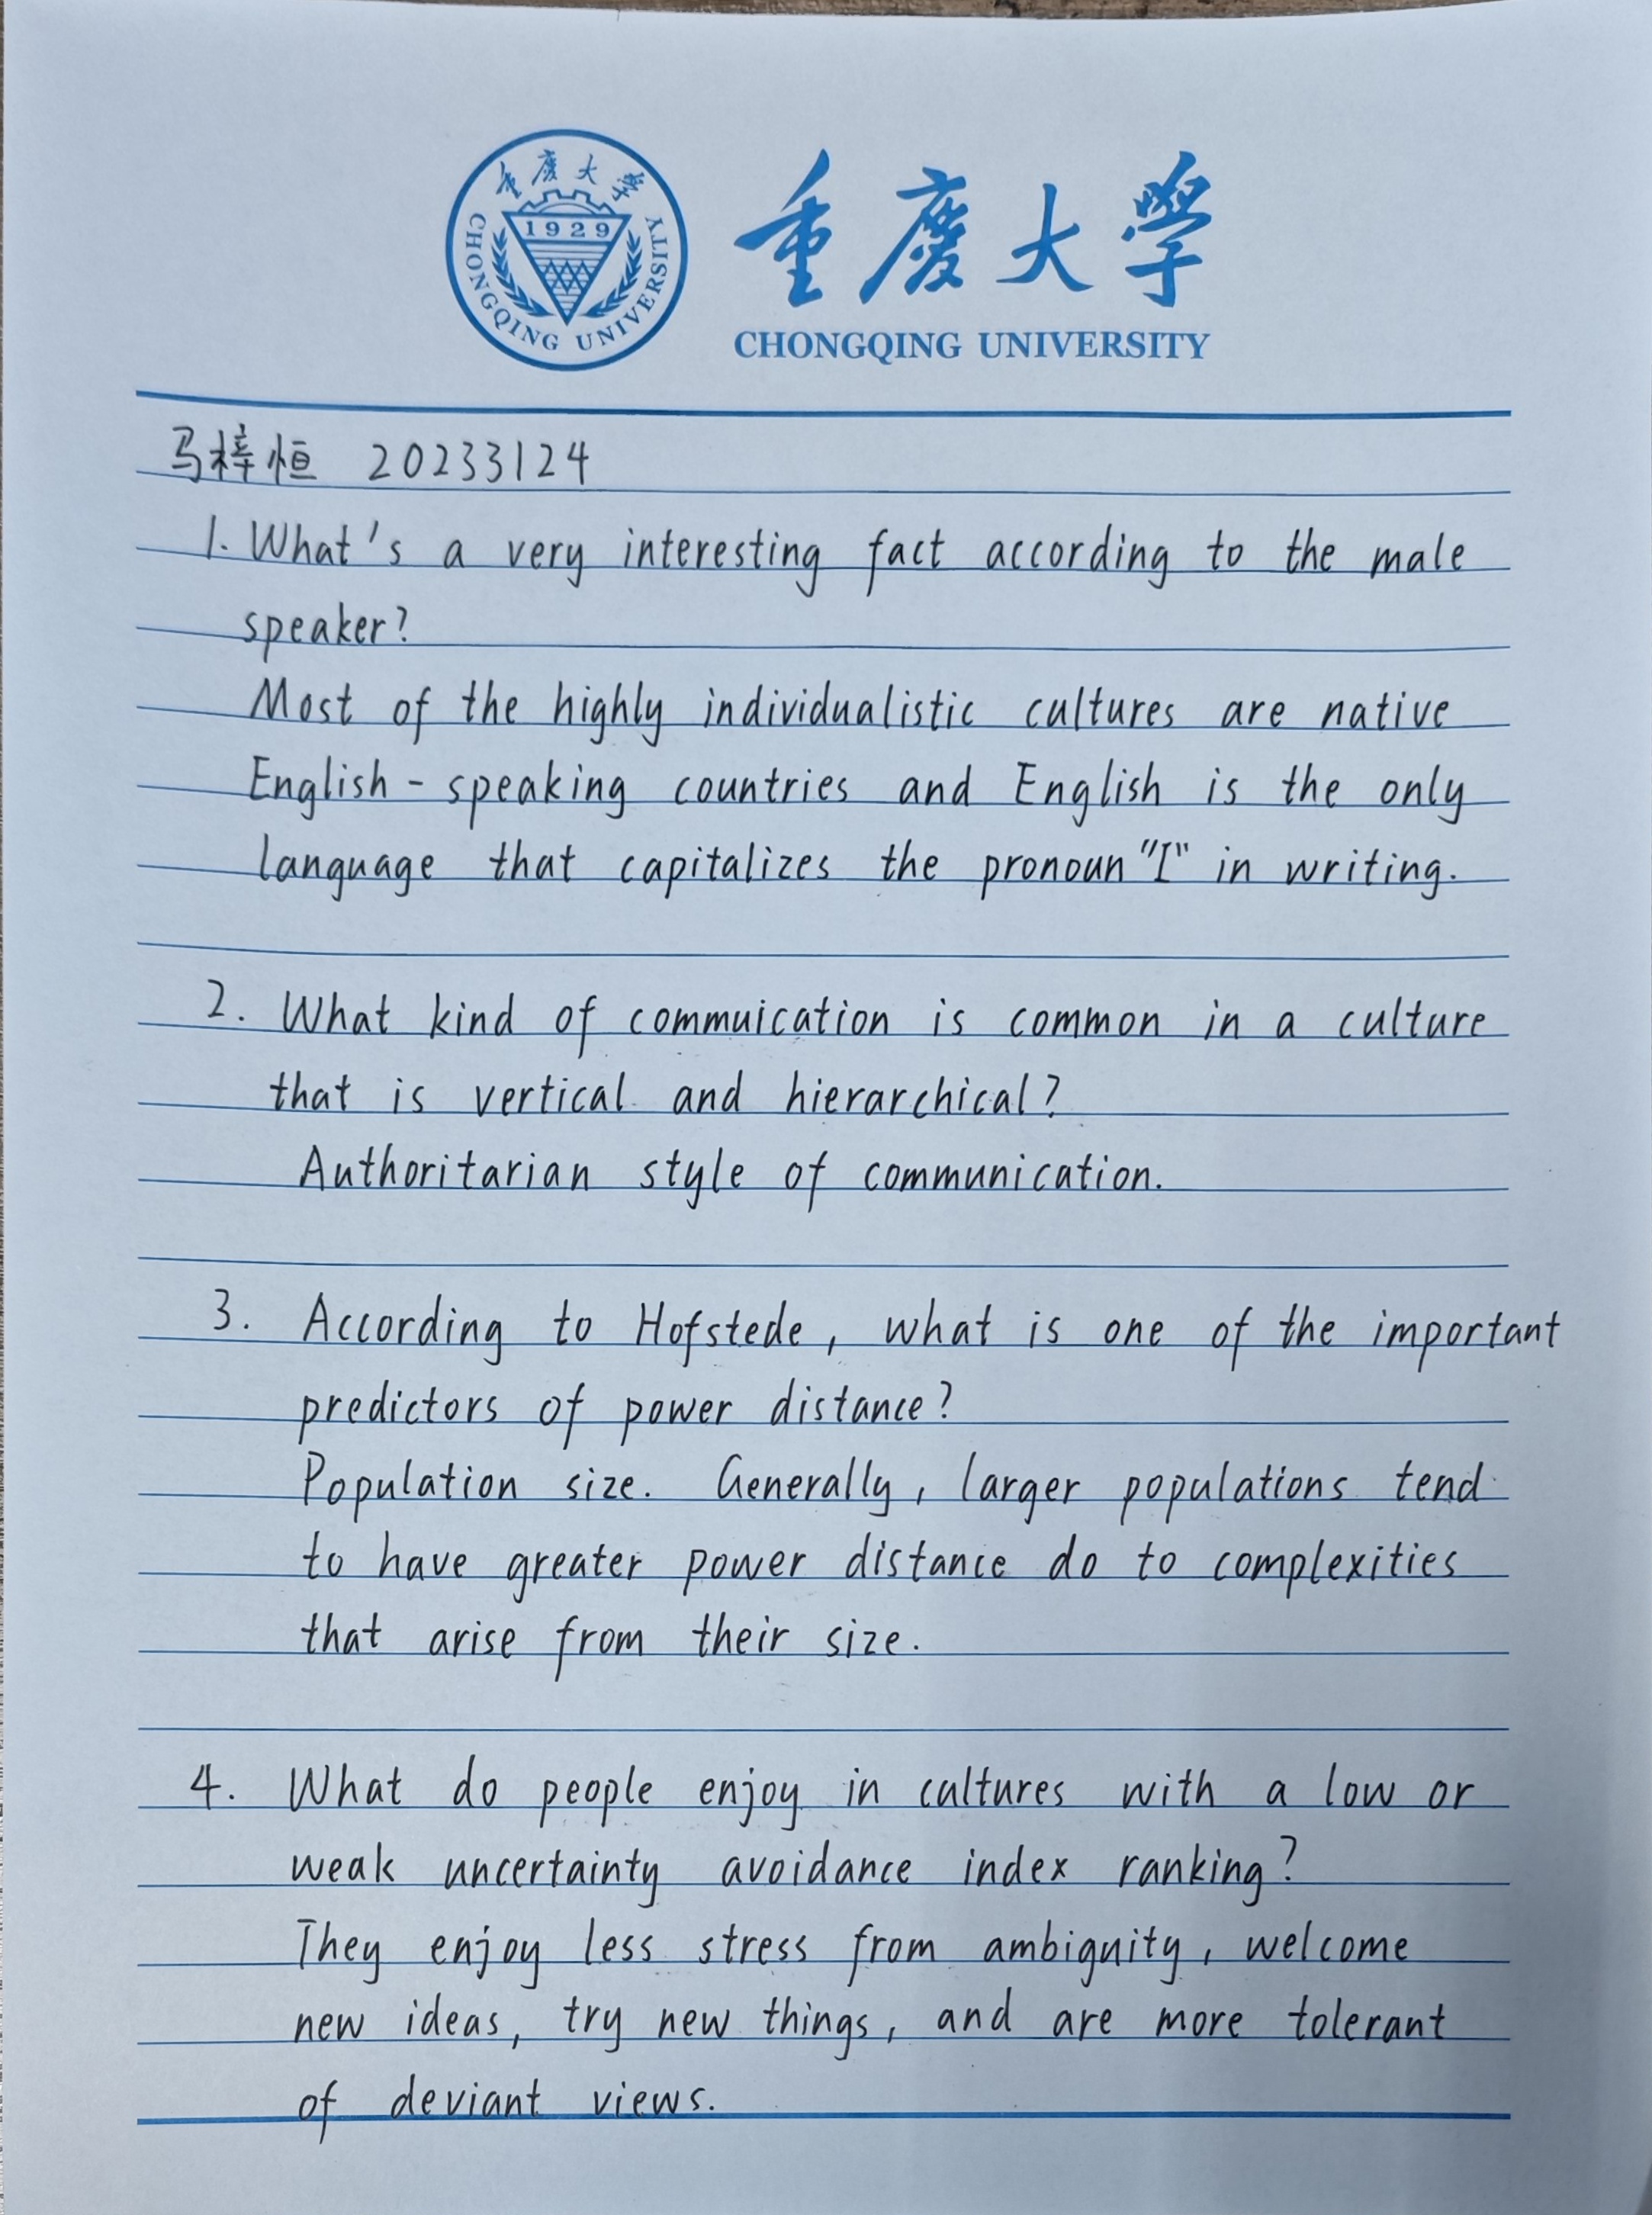 重慶大學
1929
CHONGQING UNIVERSITY
重慶大學
CHONGQING UNIVERSITY
马梓恒 20233124
1. What's a very interesting fact according to the male
speaker?
Most of the highly individualistic cultures are native
English-speaking countries and English is the only
language that capitalizes the pronoun "I" in writing.
2. What kind of commuication is common in a culture
that is vertical and hierarchical?
Authoritarian style of communication.
3. According to Hofstede, what is one of the important
predictors of power distance?
Population size. Generally, larger populations tend
to have greater power distance do to complexities
that arise from their size.
4. What do people enjoy in cultures with a low or
weak uncertainty avoidance index ranking?
They enjoy less stress from ambiguity, welcome
new ideas, try new things, and are more tolerant
of deviant views.